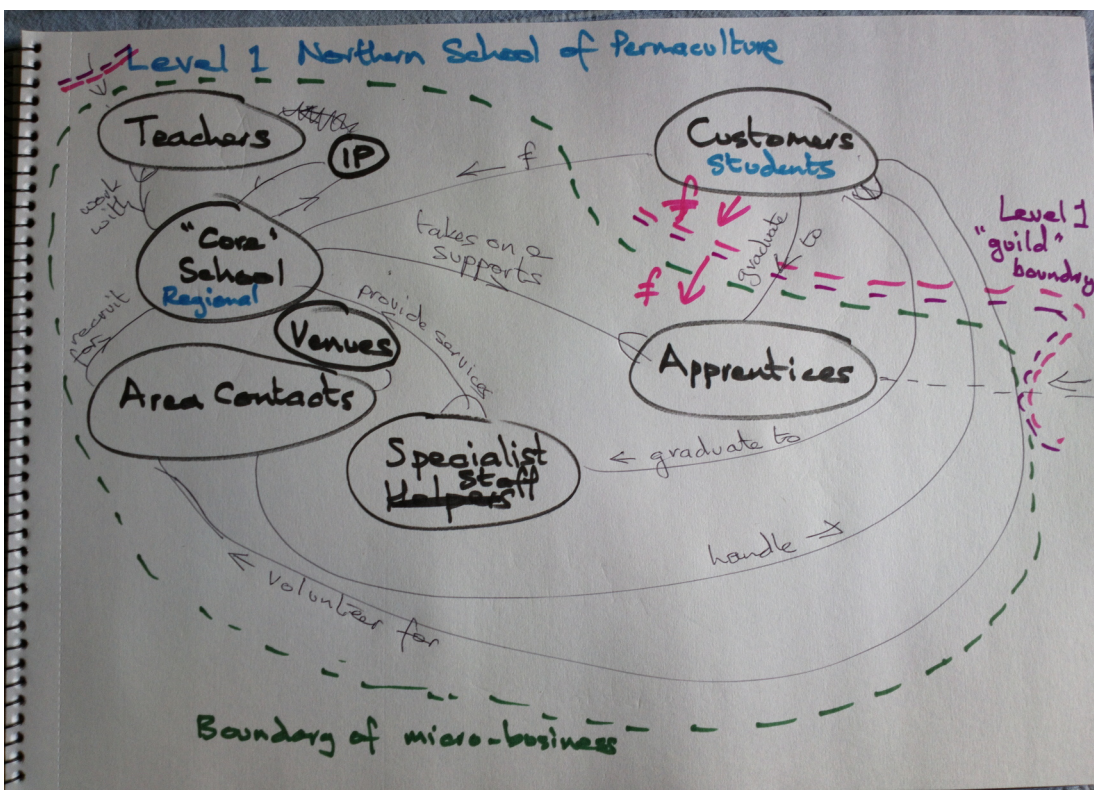 Level 1 Northern School of Permaculture
Teachers
IP
Customers
Students
£
£
£
work
with
"Core"
School
Regional
takes on &
supports
graduate
to
Level 1
"guild"
boundry
recruit
for
Venues
provide services
Apprentices
Area Contacts
Specialist
Staff
Helpers
graduate to
handle
volunteer for
Boundary of micro-business